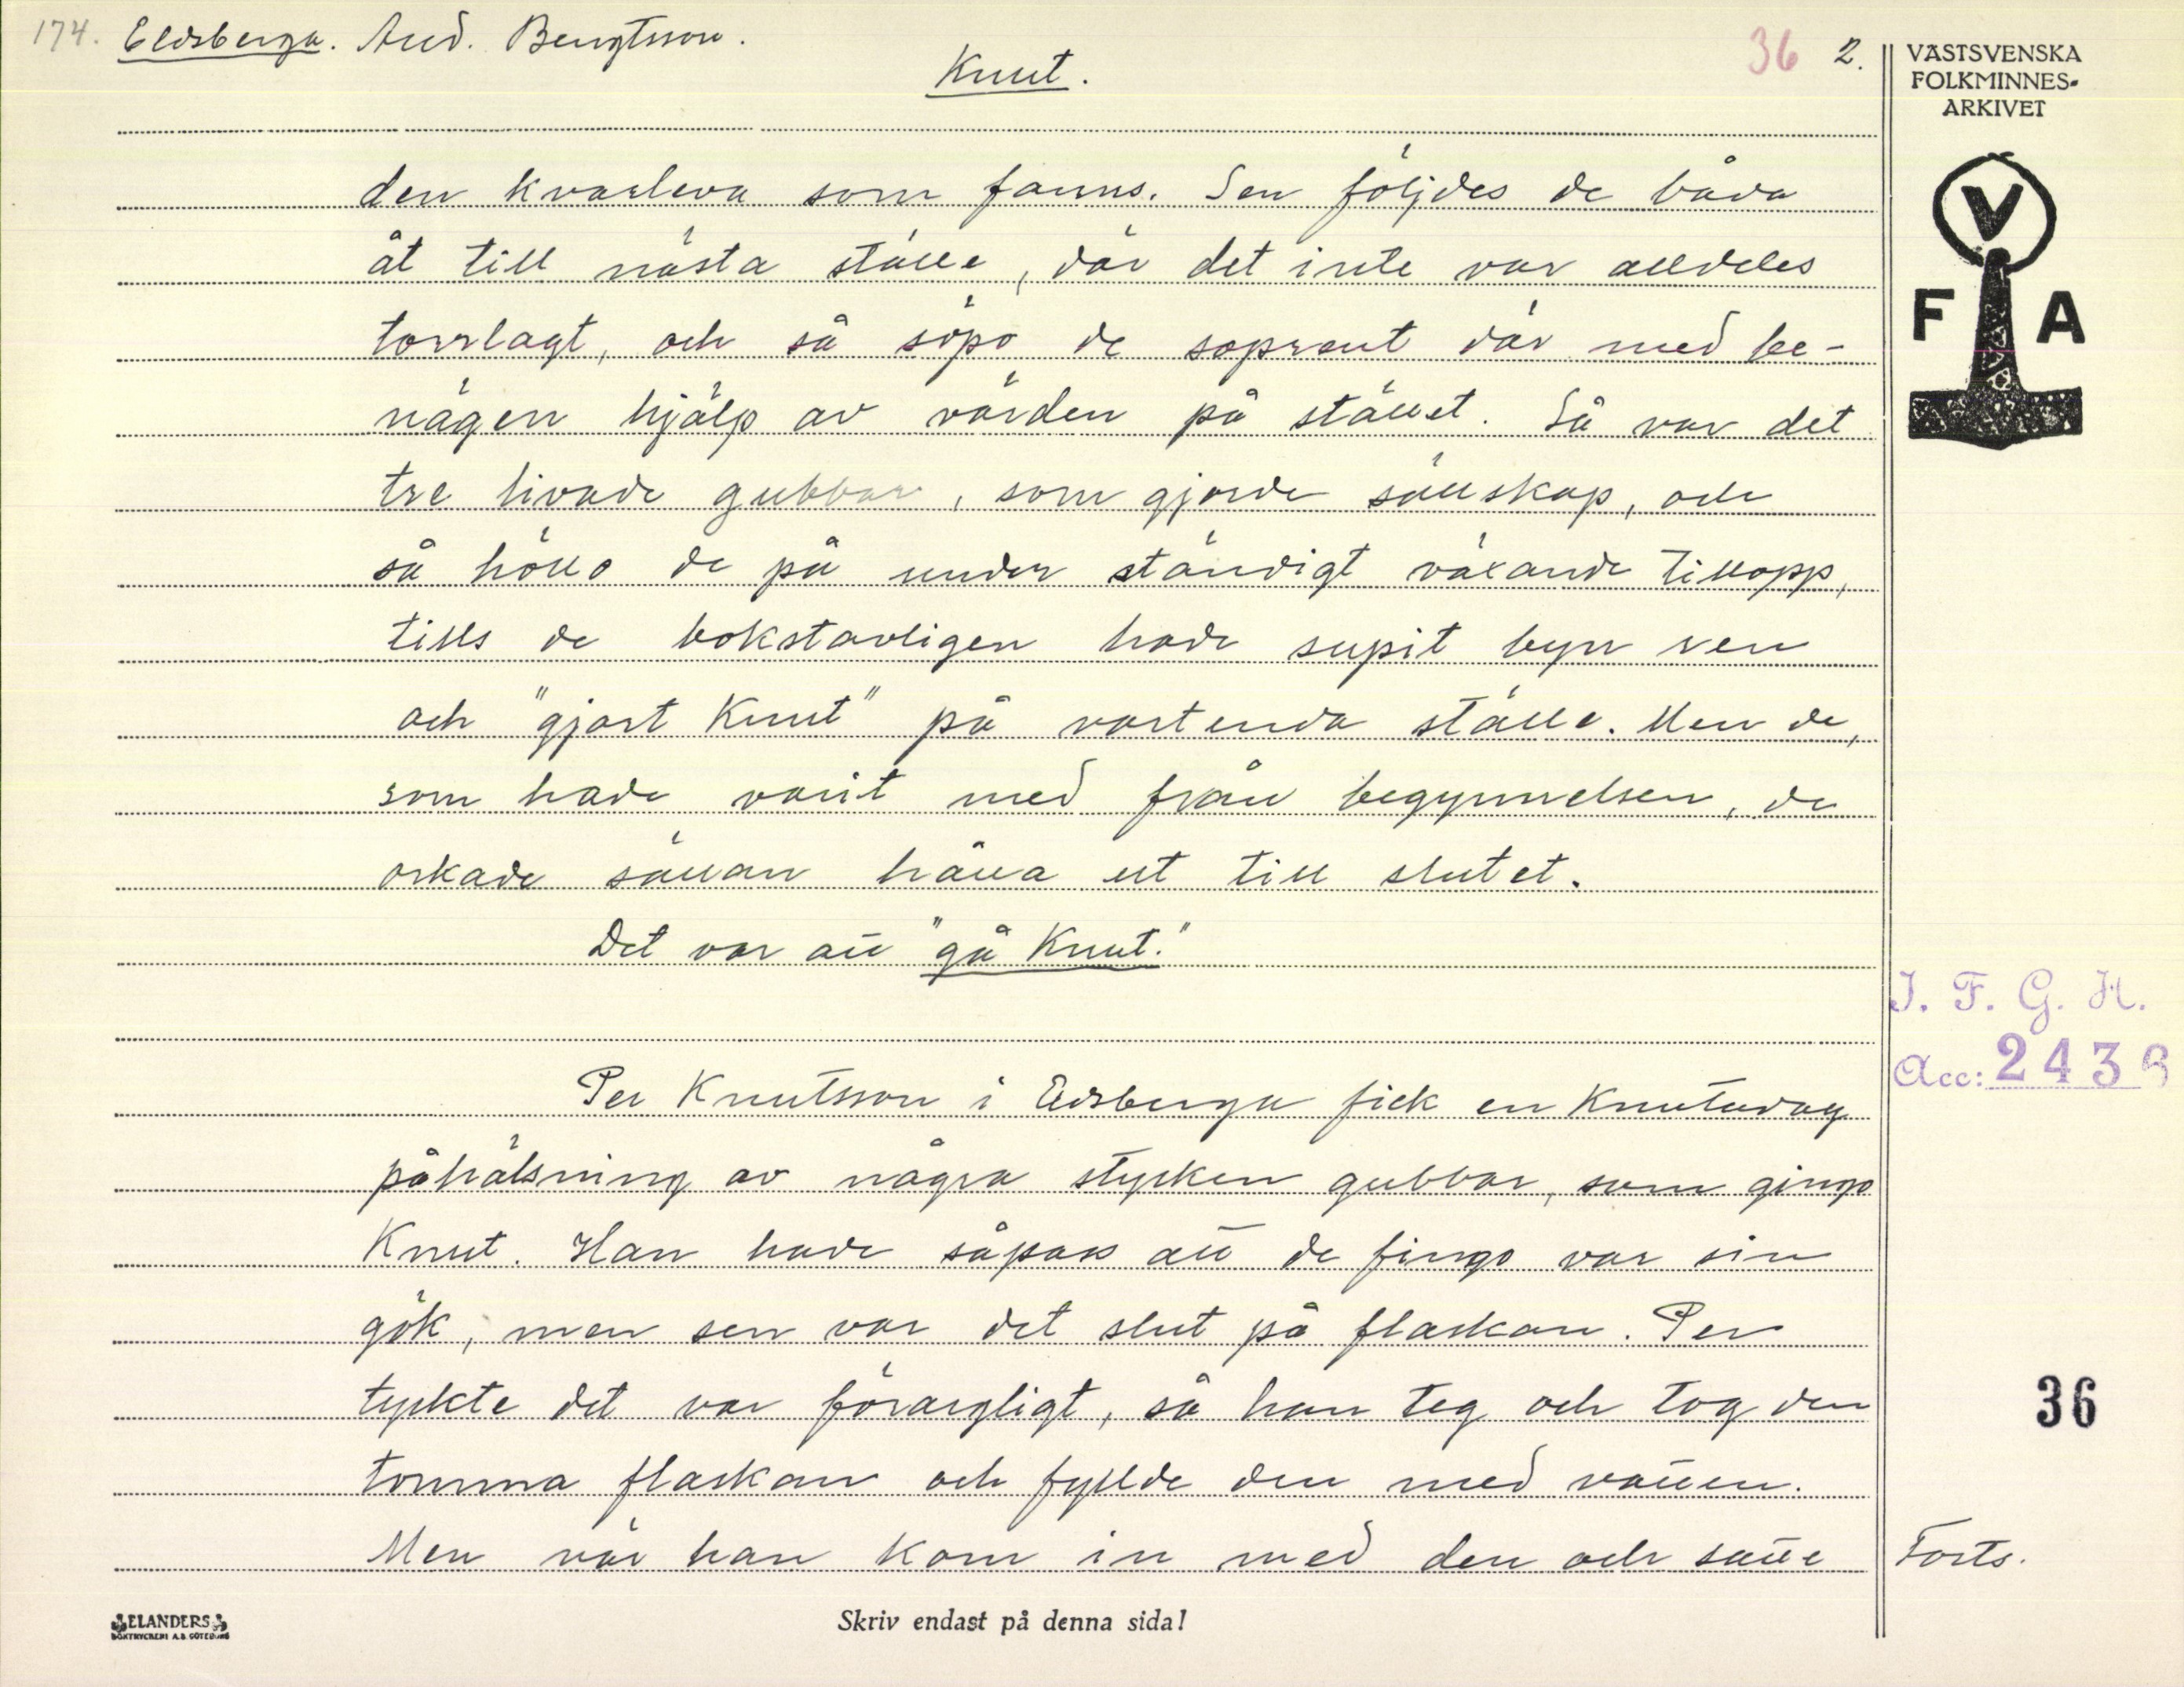 174. Eldsberga. And. Bengtsson.
Knut.
36 2.
VÄSTSVENSKA
FOLKMINNES-
ARKIVET
V
F A
den kvarleva som fanns. Sen följdes de båda
åt till nästa ställe, där det inte var alldeles
torrlagt, och så söpo de soprent där med be-
nägen hjälp av värden på stället. Så var det
tre livade gubbar, som gjorde sällskap, och
så höllo de på under ständigt växande tillopp,
tills de bokstavligen hade supit byn ren
och "gjort Knut" på vartenda ställe. Men de,
som hade varit med från begynnelsen, de
orkade sällan hålla ut till slutet.
Det var att "gå Knut."
I. F. G. H.
Acc: 2436
Per Knutsson i Eldsberga fick en Knutsdag
påhälsning av några stycken gubbar, som gingo
Knut. Han hade såpass att de fingo var sin
gök, men sen var det slut på flaskan. Per
tyckte det var förargligt, så han teg och tog den
tomma flaskan och fyllde den med vatten.
Men när han kom in med den och satte
36
Forts.
ELANDERS
BOKTRYCKERI A.B. GÖTEBORG
Skriv endast på denna sida!